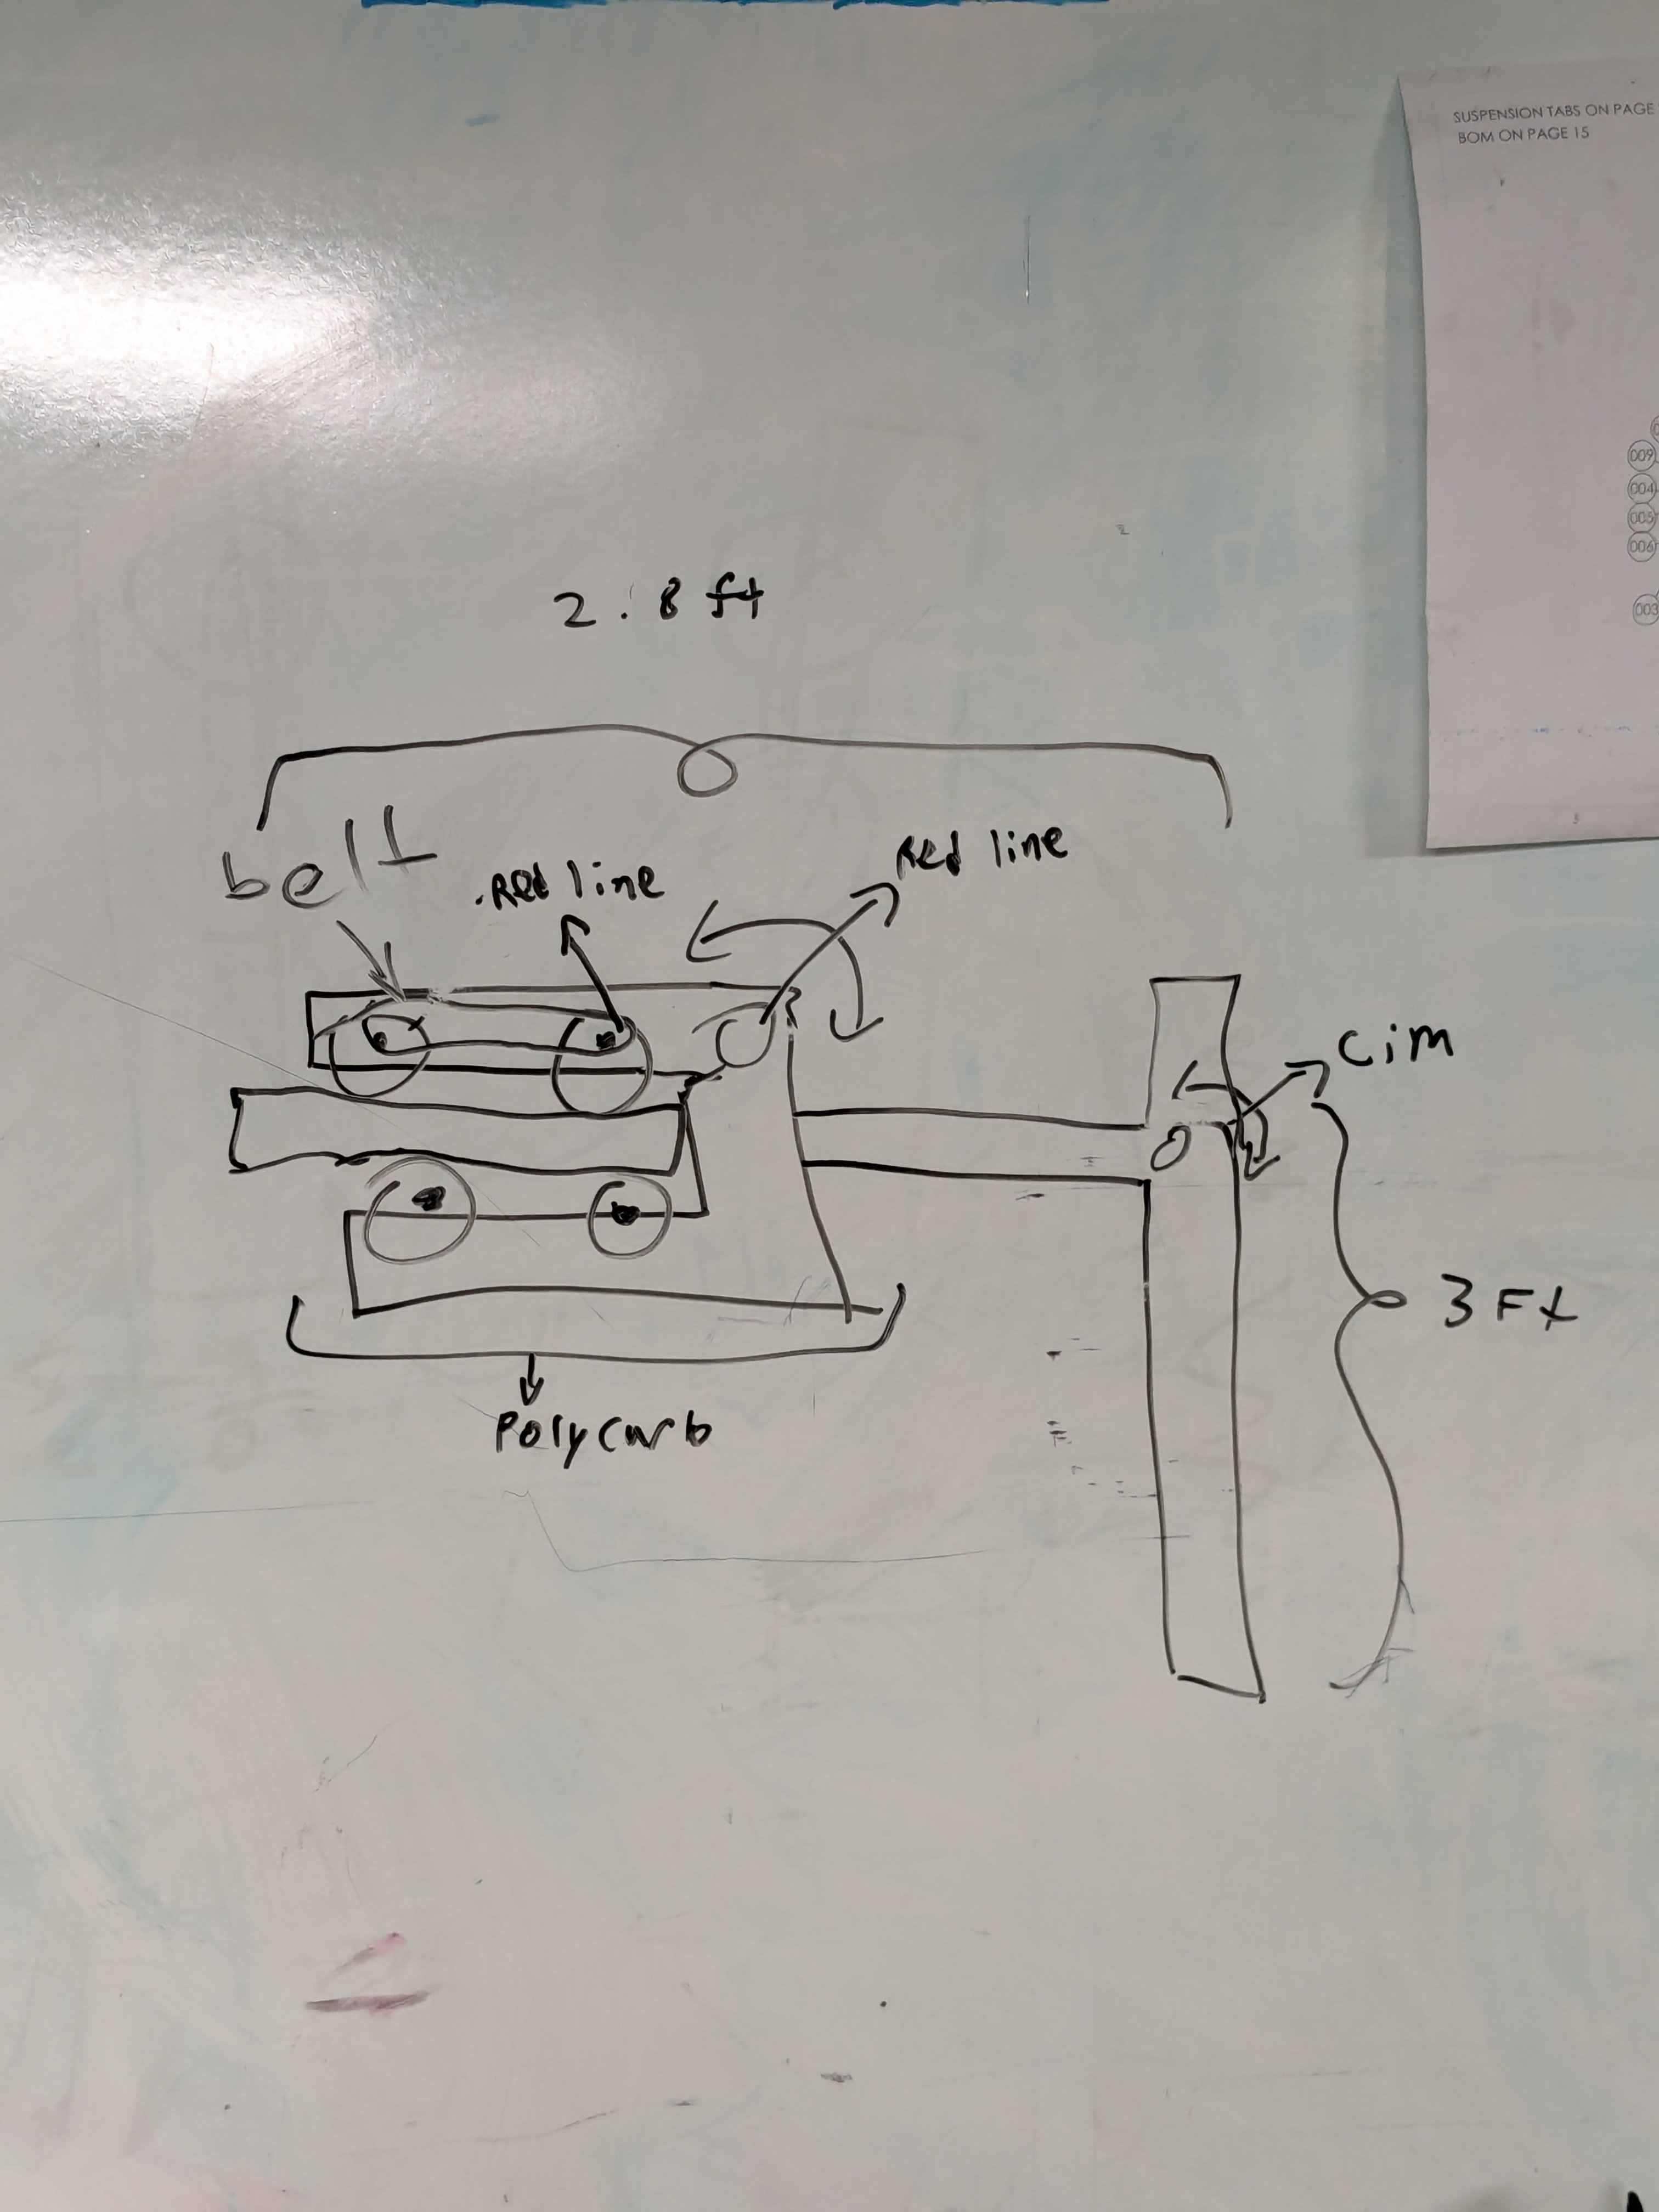 SUSPENSION TABS ON PAGE
BOM ON PAGE 15
009
004
005
006
003
2.8 ft
belt
Red line
Red line
Cim
3 Ft
Polycarb